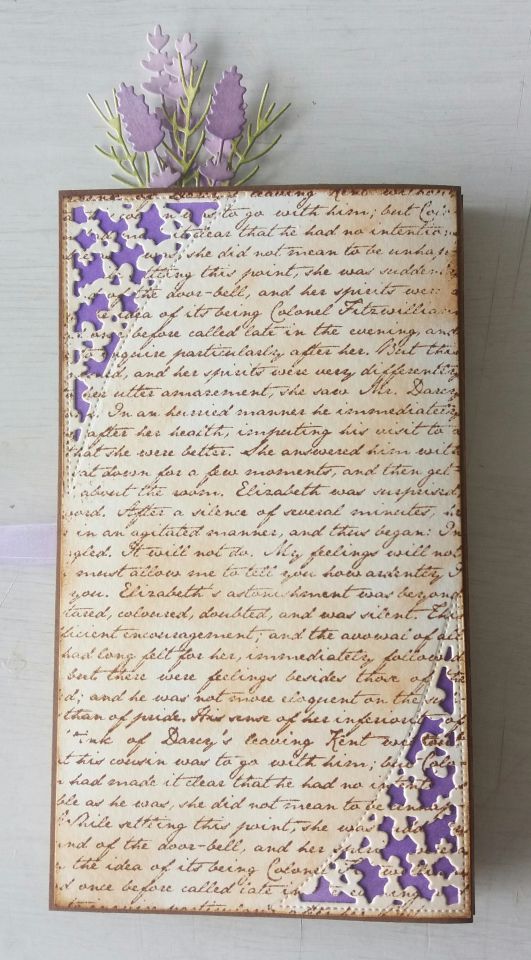 of Darcy's leaving Kent without
to go with him; but Col
clear that he had no intentio
she did not mean to be unhap
ttling this point, she was sudden
the door-bell, and her spirits were
idea of its being Colonel Fitzwillia
once before called late in the evening, and
to enquire particularly after her. But this
and her spirits were very differently
her utter amazement, she saw Mr. Darcy
In an hurried manner he immediately
after her health, imputing his visit to a
that she were better. She answered him with
sat down for a few moments, and then get-
about the room. Elizabeth was surprised,
word. After a silence of several minutes, he
in an agitated manner, and thus began: In
ggled. It will not do. My feelings will not
must allow me to tell you how ardently I
you. Elizabeth's astonishment was beyond
tared, coloured, doubted, and was silent. Th
fficient encouragement; and the avowal of all
had long felt for her, immediately followed
but there were feelings besides those of the
d; and he was not more eloquent on the su
than of pride. His sense of her inferiority of
ink of Darcy's leaving Kent without
t his cousin was to go with him; but Colo
had made it clear that he had no inten
ble as he was, she did not mean to be unhap
While settling this point, she was sudd
nd of the door-bell, and her spiri were
the idea of its being Colonel Fitzwillia
s once before called late in evening